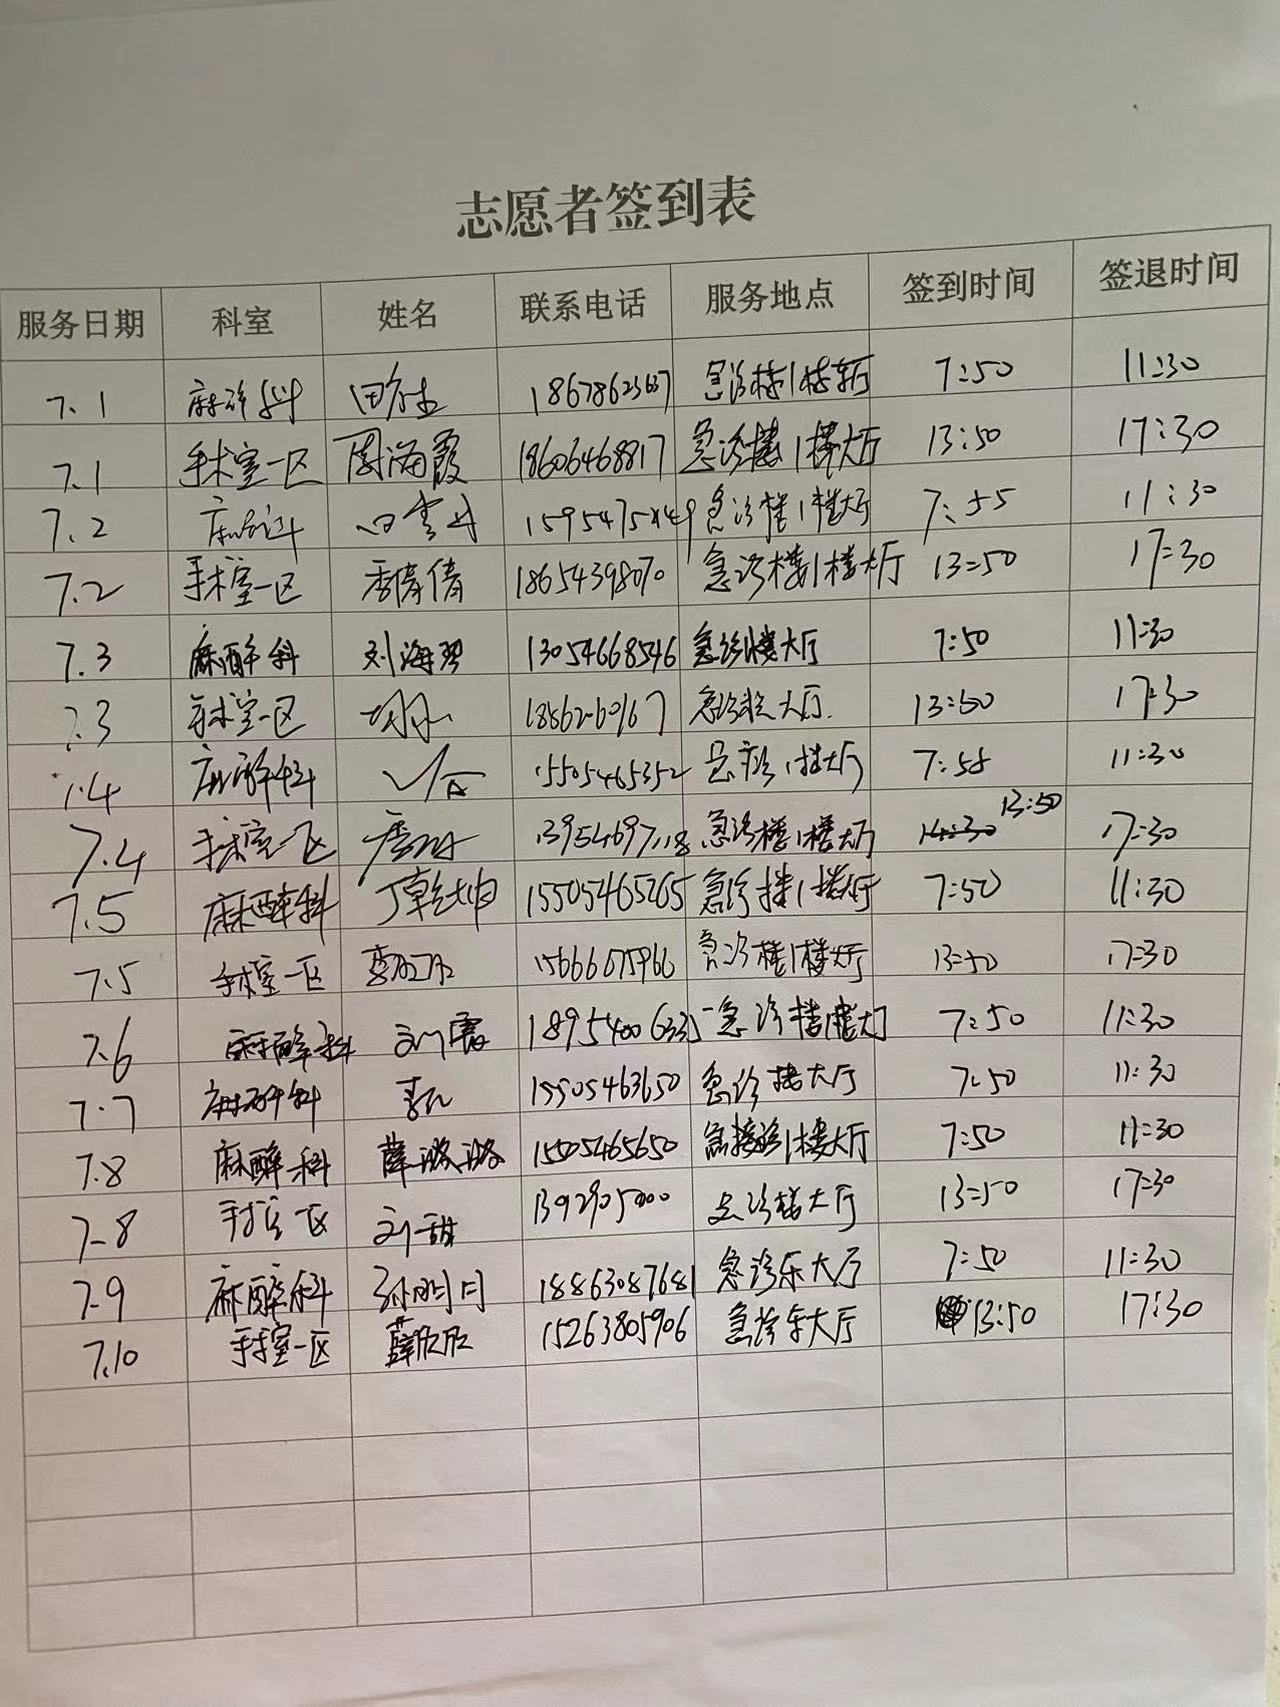 志愿者签到表
服务日期 科室 姓名 联系电话 服务地点 签到时间 签退时间
7.1 麻醉科 18678623637 急诊楼1楼大厅 7:50 11:30
7.1 手术室一区 周海霞 18606468817 急诊楼1楼大厅 13:50 17:30
7.2 急诊楼1楼大厅 7:55 11:30
7.2 手术室一区 季倩倩 18654398070 急诊楼1楼大厅 13:50 17:30
7.3 麻醉科 刘海翠 13054668546 急诊楼大厅 7:50 11:30
7.3 手术室一区 急诊楼大厅 13:50 17:30
7.4 麻醉科 15505465352 急诊1楼大厅 7:55 11:30
7.4 手术室一区 急诊楼1楼大厅 14:30 13:50 17:30
7.5 麻醉科 丁乾坤 15505465265 急诊楼1楼大厅 7:50 11:30
7.5 手术室一区 15666675966 急诊楼1楼大厅 13:50 17:30
7.6 麻醉科 刘霞 急诊楼1楼大厅 7:50 11:30
7.7 麻醉科 15505463650 急诊楼大厅 7:50 11:30
7.8 麻醉科 薛潞潞 15505465650 7:50 11:30
7-8 刘甜 急诊楼大厅 13:50 17:30
7.9 麻醉科 孙明月 18863087681 急诊乐大厅 7:50 11:30
7.10 手术室一区 薛欣欣 15263805906 急诊乐大厅 13:50 17:30